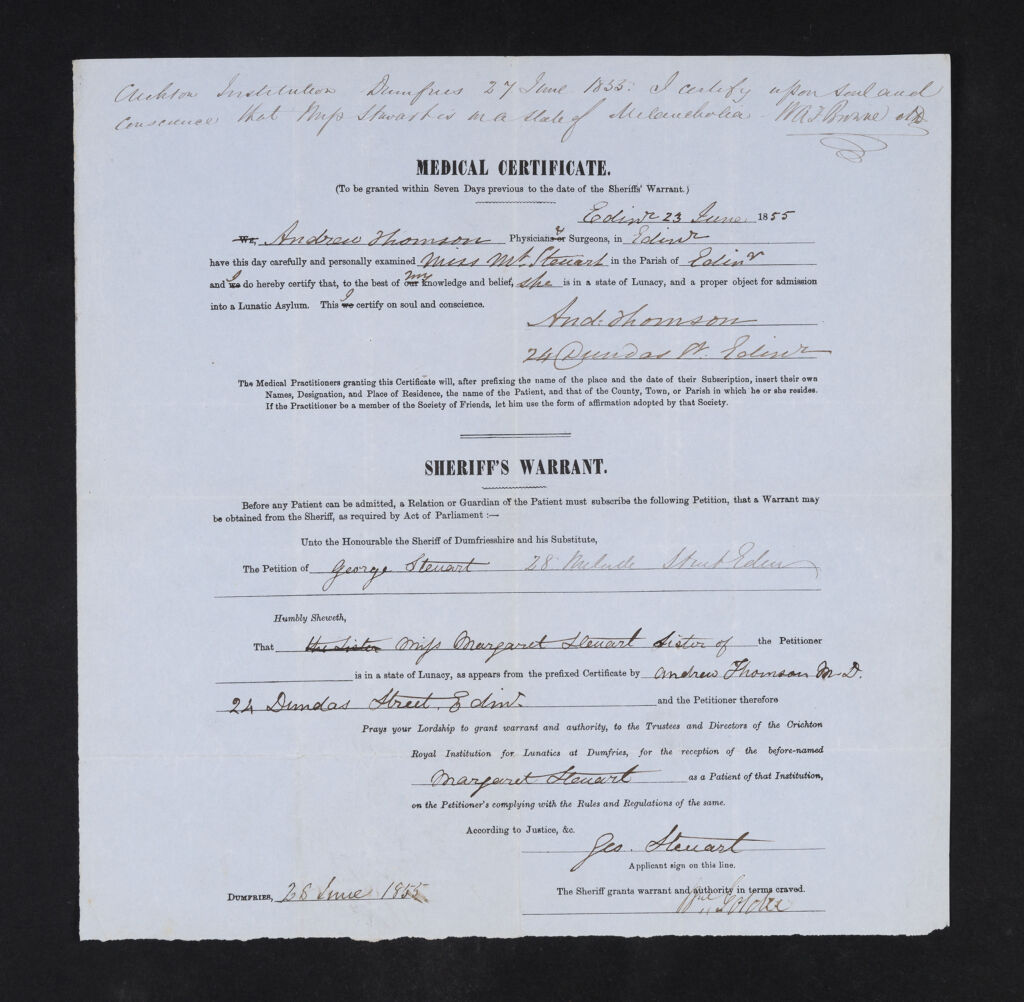 Crichton Institution Dumfries 27 June 1855. I certify upon soul and
conscience that Miss Stewart is in a state of Melancholia WAF Browne MD
MEDICAL CERTIFICATE.
(To be granted within Seven Days previous to the date of the Sheriffs' Warrant.)
Edinr 23 June 1855
We, Andrew Thomson Physicians or Surgeons, in Edinr
have this day carefully and personally examined Miss Mt. Steuart in the Parish of Edinr
and we I do hereby certify that, to the best of our my knowledge and belief, she is in a state of Lunacy, and a proper object for admission
into a Lunatic Asylum. This we I certify on soul and conscience.
And. Thomson
24 Dundas St. Edinr
The Medical Practitioners granting this Certificate will, after prefixing the name of the place and the date of their Subscription, insert their own
Names, Designation, and Place of Residence, the name of the Patient, and that of the County, Town, or Parish in which he or she resides.
If the Practitioner be a member of the Society of Friends, let him use the form of affirmation adopted by that Society.
SHERIFF'S WARRANT.
Before any Patient can be admitted, a Relation or Guardian of the Patient must subscribe the following Petition, that a Warrant may
be obtained from the Sheriff, as required by Act of Parliament :—
Unto the Honourable the Sheriff of Dumfriesshire and his Substitute,
The Petition of George Steuart 28 Street Edinr
Humbly Sheweth,
That the Sister Miss Margaret Steuart Sister of the Petitioner
is in a state of Lunacy, as appears from the prefixed Certificate by Andrew Thomson M.D.
24 Dundas Street, Edinr. and the Petitioner therefore
Prays your Lordship to grant warrant and authority, to the Trustees and Directors of the Crichton
Royal Institution for Lunatics at Dumfries, for the reception of the before-named
Margaret Steuart as a Patient of that Institution,
on the Petitioner's complying with the Rules and Regulations of the same.
According to Justice, &c.
Geo. Steuart
Applicant sign on this line.
The Sheriff grants warrant and authority in terms craved.
DUMFRIES, 28 June 1855